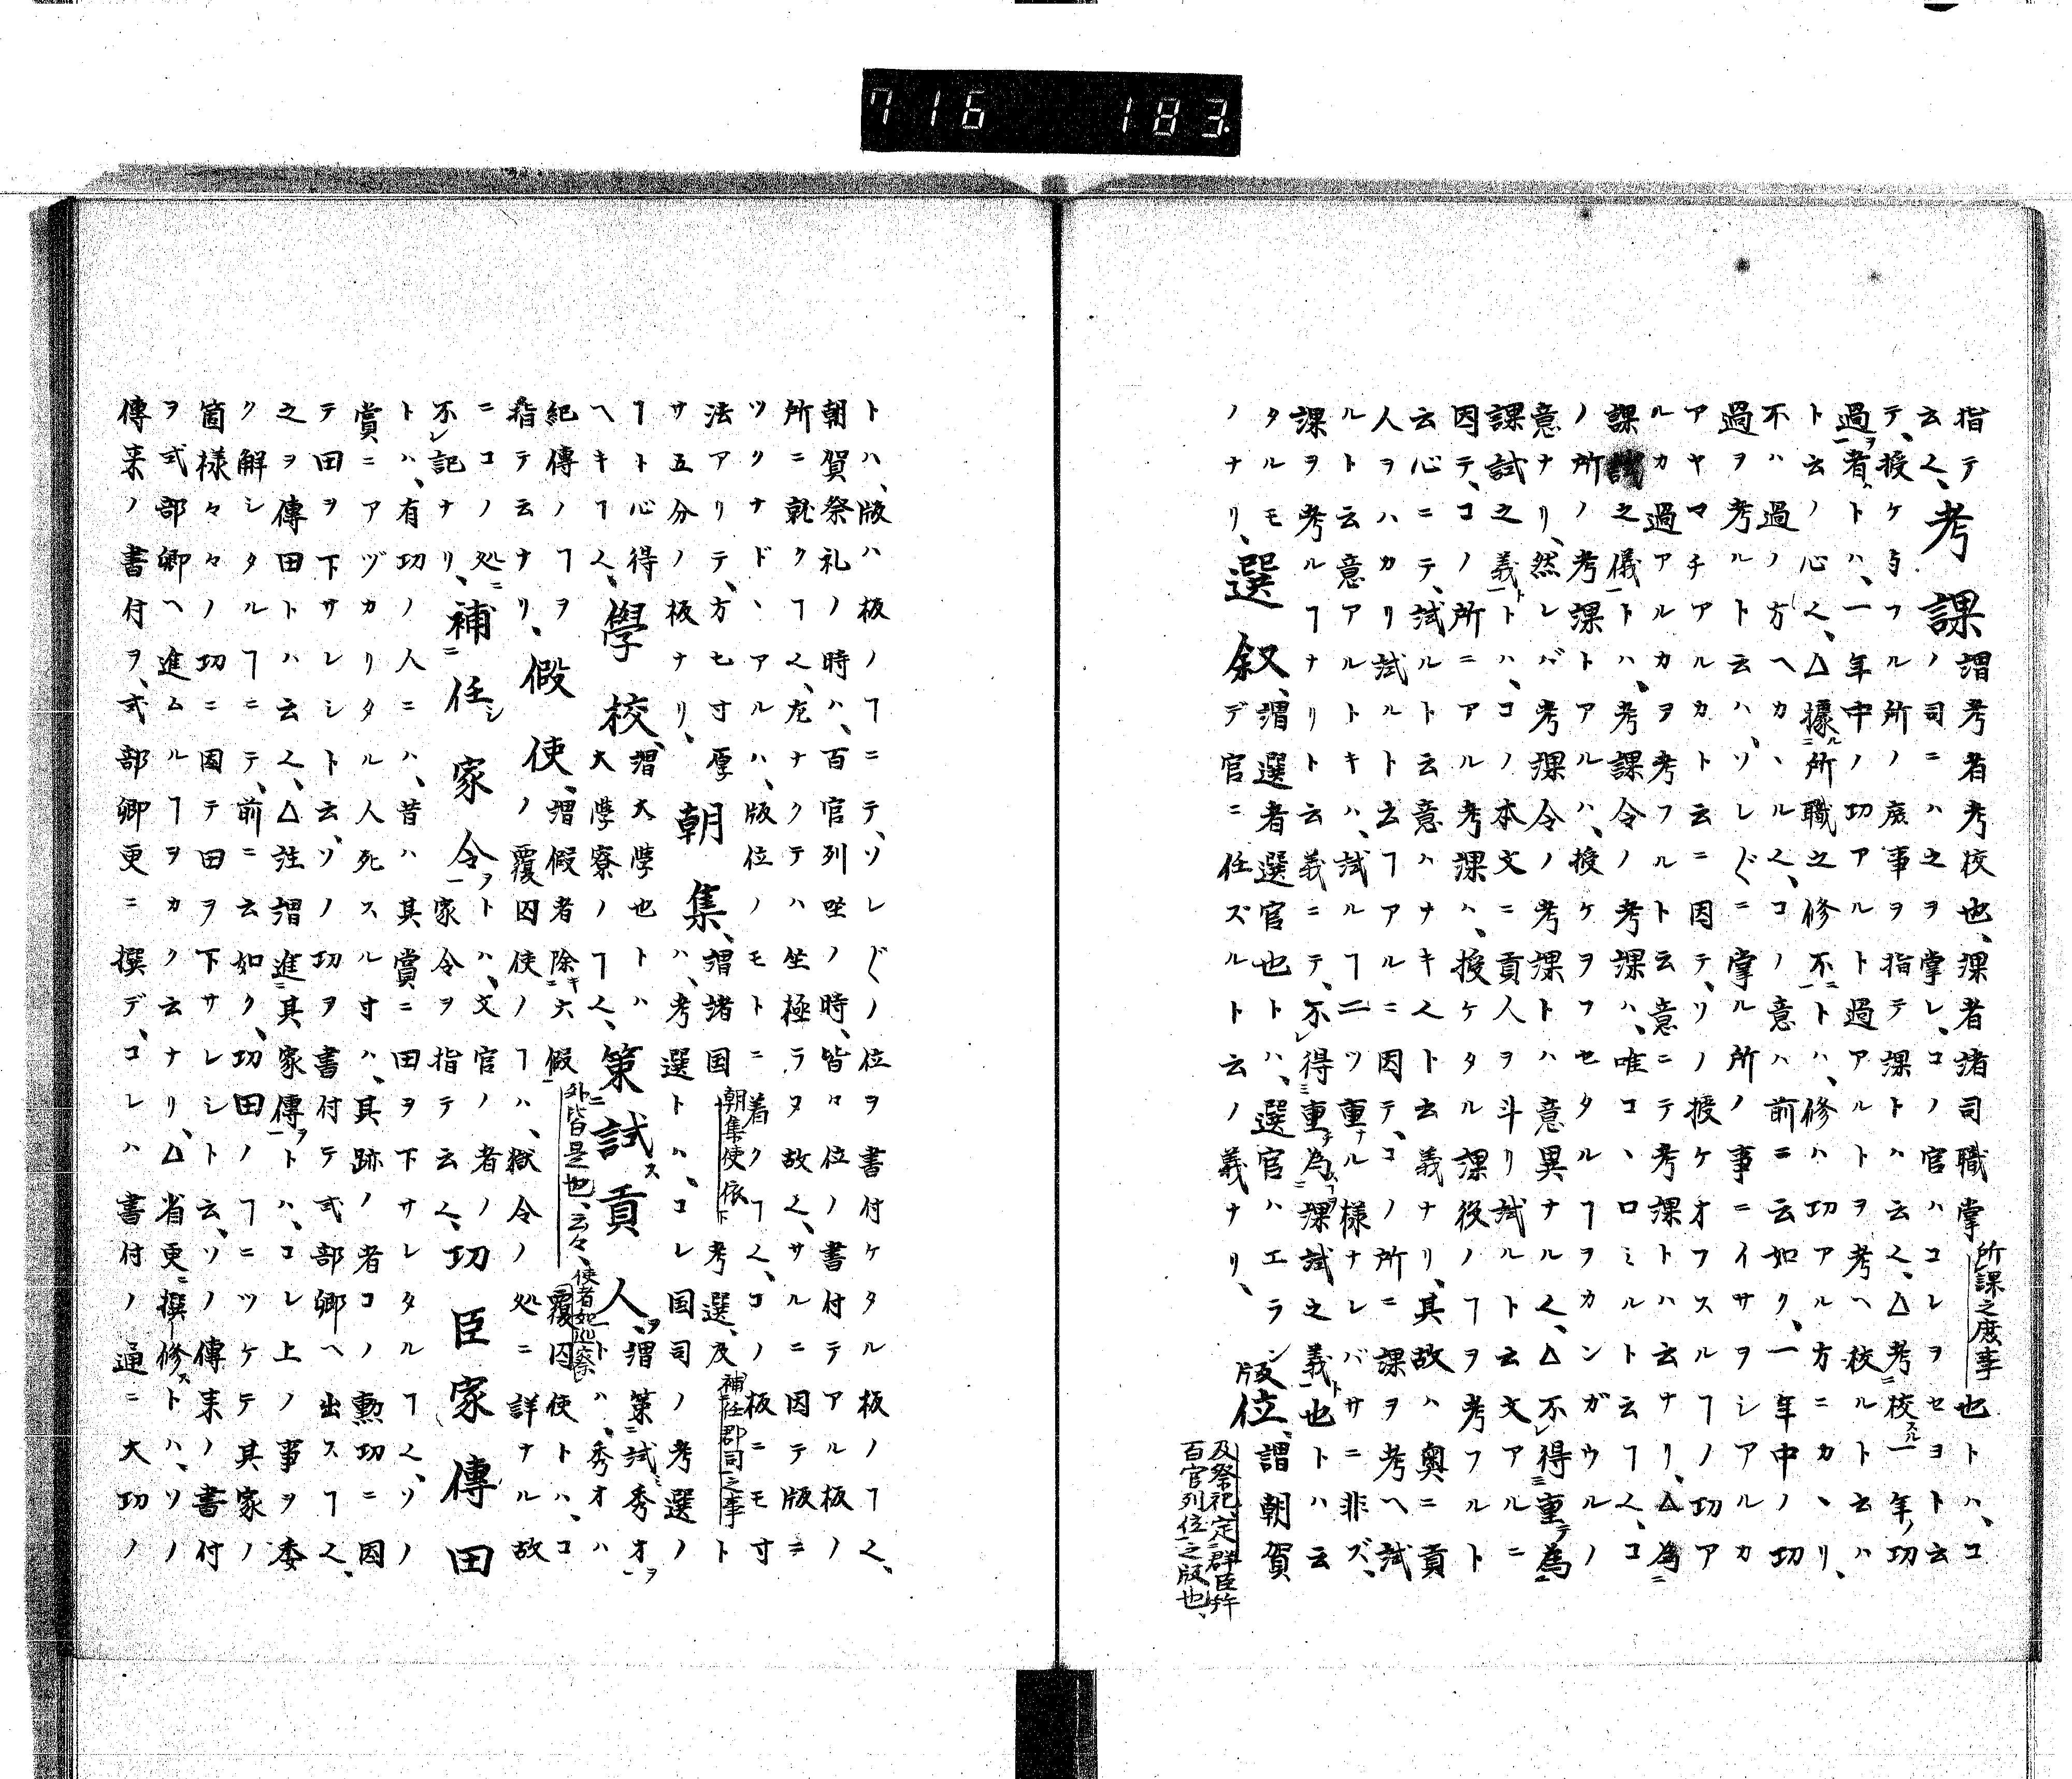 716 183
指テ云〱、考課謂考者考校也、課者諸司職掌所課之庶事也トハ、コ
ノ司ニハ之ヲ掌レ、コノ官ハコレヲセヨト云
テ、授ケ与フル所ノ庶事ヲ指テ課トハ云〱、△考校スル一年ノ功
過ヲ者トハ、一年中ノ功アルト過アルトヲ考ヘ校ルト云ハ
ト云ノ心〱、△據ル所職之修不トハ、修ハ功アル方ニカヽリ、
不ハ過ノ方ヘカヽル〱、コノ意ハ前ニ云如ク、一年中ノ功
過ヲ考ルト云ハ、ソレ〲ニ掌ル所ノ事ニイサヲシアルカ
アヤマチアルカト云ニ因テ、ソノ授ケオフスルヿノ功ア
ルカ過アルカヲ考フルト云意ニテ考課トハ云ナリ、△為
課試之儀トハ、考課令ノ考課ハ、唯コヽロミルト云ヿ〱、コ
ノ所ノ考課トアルハ、授ケヲフセタルヿヲカンガウルノ
意ナリ、然レバ考課令ノ考課トハ意異ナル〱、△不得重テ為
課試之義トハ、コノ本文ニ貢人ヲ斗リ試ルト云文アルニ
因テ、コノ所ニアル考課ハ、授ケタル課役ノヿヲ考フルト
云心ニテ、試ルト云意ハナキ〱ト云義ナリ、其故ハ奥ニ貢
人ヲハカリ試ルト云ヿアルニ因テ、コノ所ニ課ヲ考ヘ試
ルト云意アルトキハ、試ルヿ二ツ重ナル様ナレバサニ非ズ、
課ヲ考ルヿナリト云義ニテ、不得重為課試之義也トハ云
タルモノナリ、選叙、謂選者選官也トハ、選官ハエラン
デ官ニ任ズルト云ノ義ナリ、版位、謂朝賀及祭祀、定群臣并百官列位之版也、
トハ、版ハ板ノヿニテ、ソレ〲ノ位ヲ書付ケタル板ノヿ〱、
朝賀祭礼ノ時ハ、百官列坐ノ時、皆々位ノ書付テアル板ノ
所ニ就クヿ〱、左ナクテハ坐極ラヌ故〱、サルニ因テ版ニ
ツクナドヽアルハ、版位ノモトニ着クヿ〱、コノ板ニモ寸
法アリテ、方七寸厚サ五分ノ板ナリ、朝集、謂諸国朝集使依考選、及補任郡司之事ト
ハ、考選トハ、コレ国司ノ考選ノ
ヿト心得ヘキヿ〱、學校、謂大學也トハ大學寮ノヿ〱、策試貢人、謂策試秀才ヲトハ、秀才ハ
紀傳ノヿヲ指テ云ナリ、假使、謂假者除六假外皆是也、云々、使者如巡察覆囚使トハ、コ
ノ覆囚使ノヿハ、獄令ノ処ニ詳ナル故
ニコノ処ニ不記ナリ、補任家令ヲトハ、文官ノ者ノ
家令ヲ指テ云〱、功臣家傳田
トハ、有功ノ人ニハ、昔ハ其賞ニ田ヲ下サレタルヿ〱、ソノ
賞ニアヅカリタル人死スル寸ハ、其跡ノ者コノ勲功ニ因
テ田ヲ下サレシト云、ソノ功ヲ書付テ式部卿ヘ出スヿ〱、
之ヲ傳田トハ云〱、△註謂進其家傳ヲトハ、コレ上ノ事ヲ委
ク解シタルヿニテ、前ニ云如ク、功田ノヿニツケテ其家ノ
箇様々々ノ功ニ因テ田ヲ下サレシト云、ソノ傳来ノ書付
ヲ式部卿ヘ進ムルヿヲカク云ナリ、△省更撰修ストハ、ソノ
傳来ノ書付ヲ、式部卿更ニ撰デ、コレハ書付ノ通ニ大功ノ